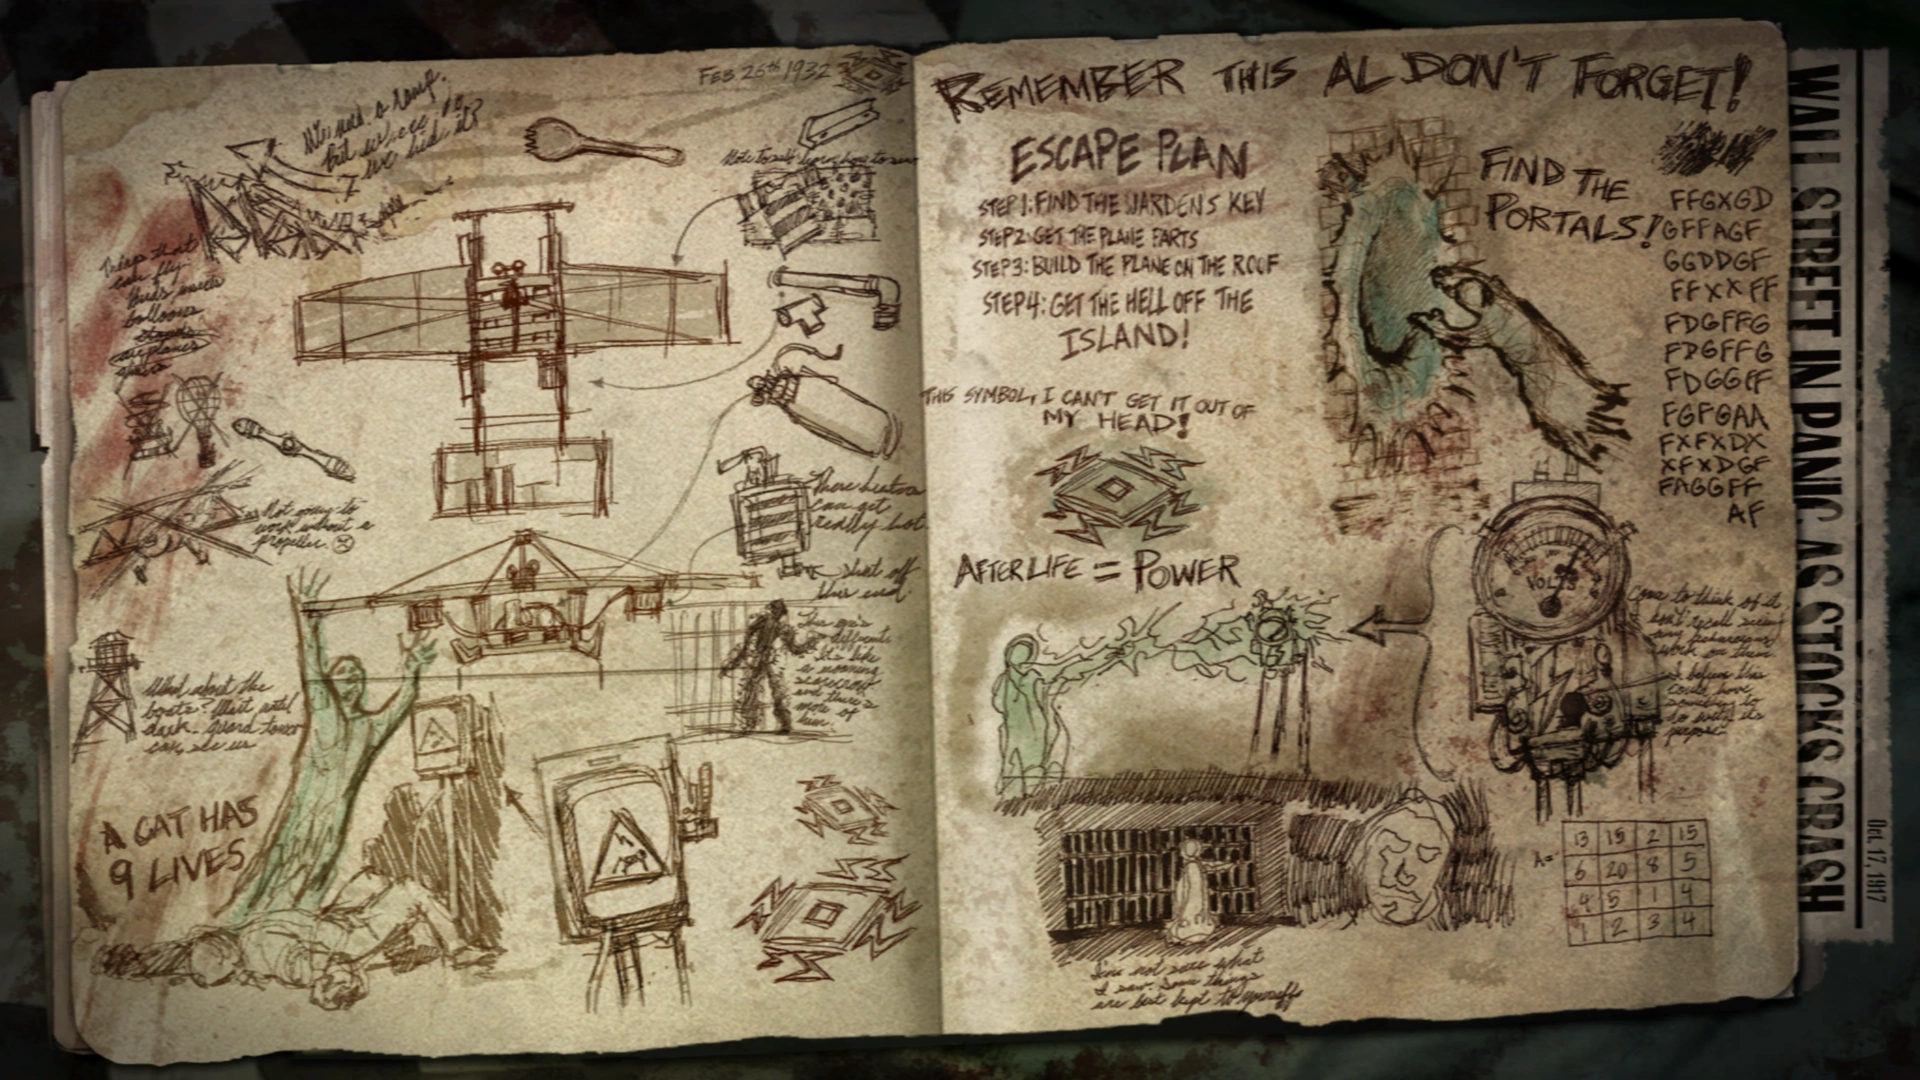 FEB 26th 1932
We need a ramp.
but where do
we hide it?
Note to self learn how to sew
Things that
can fly.
Birds insects
balloons
airplanes
Not going to
work without a
propeller.
These heaters
can get
really hot.
Shut off
This one's
different.
It's like
a moaning
scarecrow
and there's
more of
him.
What about the
boats? Wait until
dark. Guard tower
can see us
A CAT HAS
9 LIVES
REMEMBER THIS AL DON'T FORGET!
ESCAPE PLAN
STEP 1: FIND THE WARDENS KEY
STEP 2: GET THE PLANE PARTS
STEP 3: BUILD THE PLANE ON THE ROOF
STEP 4: GET THE HELL OFF THE
ISLAND!
FIND THE
PORTALS!
FFGXGD
GFFAGF
GGDDGF
FFXXFF
FDGFFG
FDGFFG
FDGGFF
FGFGAA
FXFXDX
XFXDGF
FAGGFF
AF
THIS SYMBOL, I CAN'T GET IT OUT OF
MY HEAD!
AFTERLIFE = POWER
VOLTS
Come to think of it
don't recall seeing
any
work on them.
I believe this
could have
something to
do with its
purpose
A=
13 15 2 15
6 20 8 5
4 5 1 4
1 2 3 4
I'm not sure what
I saw. Some things
are best kept to yourself
WALL STREET IN PANIC AS STOCKS CRASH
Oct. 17, 1917